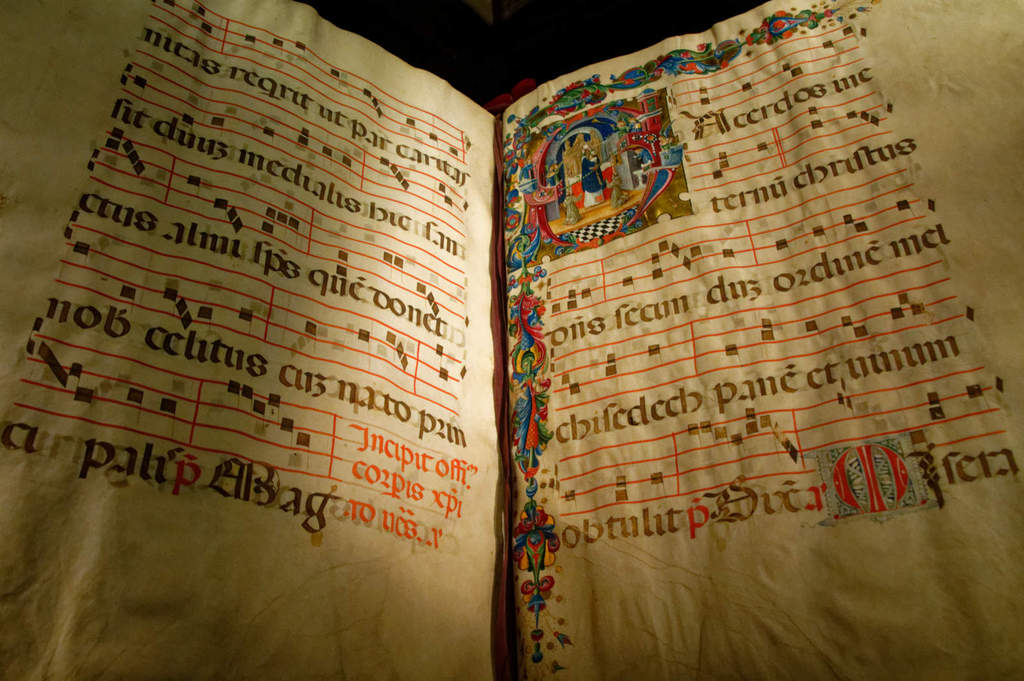 nitas reqrit ut par caritas
sit duũz medialis hic san
ctus almi sp̃s quẽ donet
nob̃ celitus cuz nato prin
Incipit offi.
corpis xp̃i
ci palis p̃ Mag
Acerdos ine
ternũ christus
dñs secun duz ordinẽ mel
chisedech panẽ et uinum
obtulit p̃ Dix̃
M isera